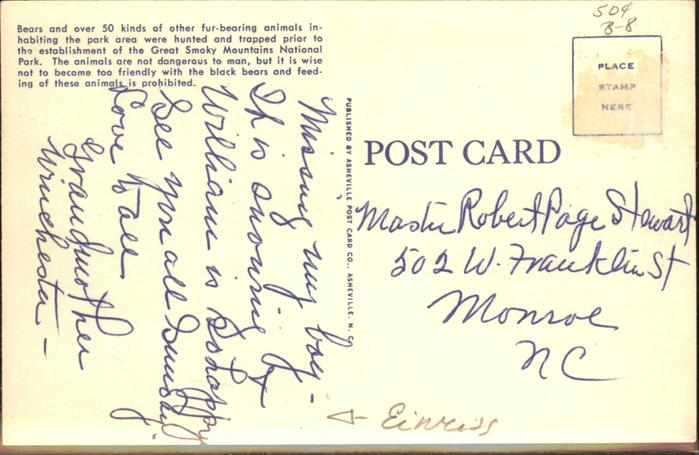 Bears and over 50 kinds of other fur-bearing animals in-
habiting the park area were hunted and trapped prior to
the establishment of the Great Smoky Mountains National
Park. The animals are not dangerous to man, but it is wise
not to become too friendly with the black bears and feed-
ing of these animals is prohibited.
Missing my boy -
It is snowing &
William is so happy
See you all Sunday.
Love to all
Grandmother
Winchester -
PUBLISHED BY ASHEVILLE POST CARD CO., ASHEVILLE, N. C.
504
B-8
PLACE
STAMP
HERE
POST CARD
Master Robert Page Stewart
502 W. Franklin St
Monroe
NC
Einriss